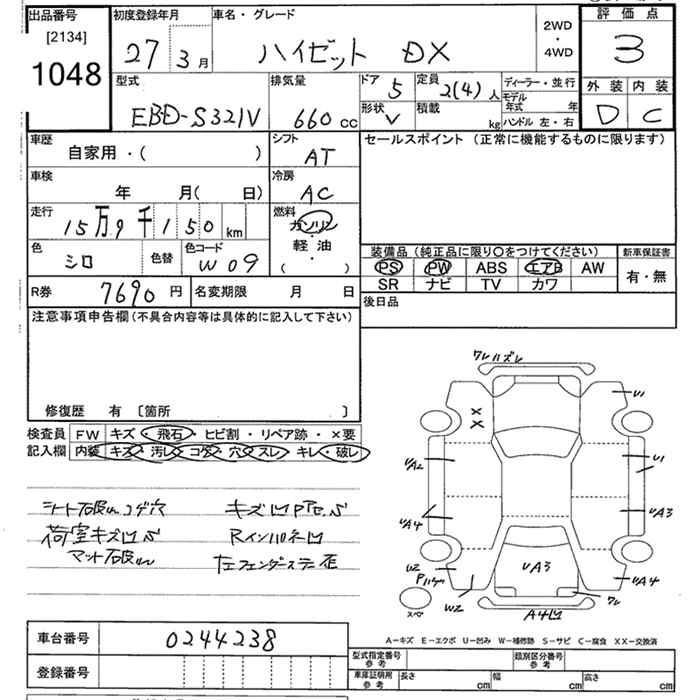 出品番号 初度登録年月 車名・グレード 2WD・4WD 評価点
[2134]
1048 27年3月 ハイゼット DX 3
型式 排気量 ドア 5 定員 2(4)人 ディーラー・並行 外装 内装
EBD-S321V 660cc 形状 V 積載 kg モデル年式 年 ハンドル 左・右 D C
車歴 シフト セールスポイント (正常に機能するものに限ります)
自家用・( ) AT
車検 冷房
年 月( 日) AC
走行 15万9千150km 燃料 ガソリン・軽油・( )
色 シロ 色替 色コード W09
装備品 (純正品に限り〇をつけてください) 新車保証書
PS PW ABS エアB AW 有・無
SR ナビ TV カワ
R券 7690円 名変期限 月 日 後日品
注意事項申告欄 (不具合内容等は具体的に記入して下さい)
修復歴 有 [箇所 ]
検査員 FW キズ・飛石・ヒビ割・リペア跡・×要
記入欄 内装 キズ・汚レ・コゲ・穴・スレ・キレ・破レ
シート破れコゲ穴 キズ凹
荷室キズ凹 Rインパネ凹
マット破れ 左フェンダーステー歪
ワレハズレ
XX
U1
U1
UA2
UA4
UA3
W2
UA3
UA4
W2
ワレ
スペア
A4凹
A-キズ E-エクボ U-凹み W-補修跡 S-サビ C-腐食 XX-交換済
車台番号 0244238 型式指定番号 参考 類別区分番号 参考
登録番号 車庫証明用 参考 長さ cm 幅 cm 高さ cm